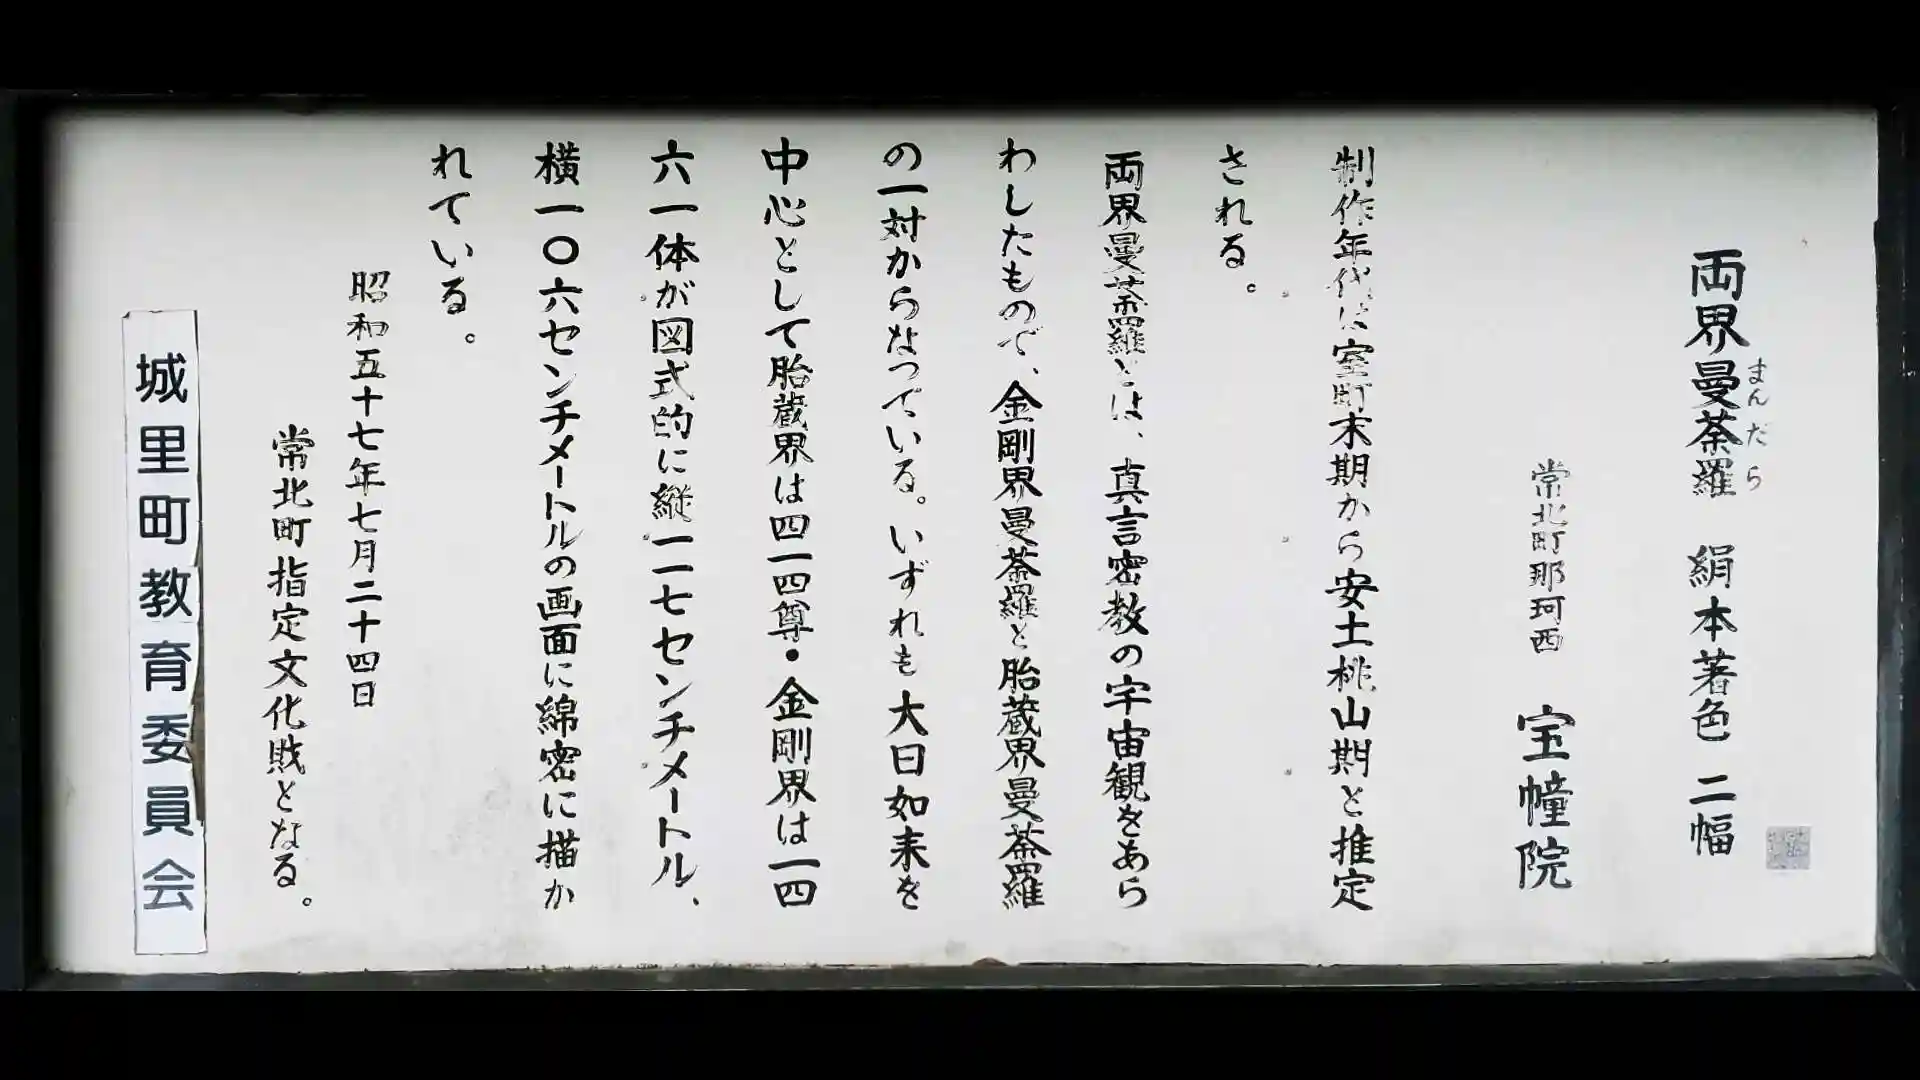 両界曼荼羅 絹本著色 二幅
まんだら
常北町那珂西 宝幢院
制作年代は室町末期から安土桃山期と推定
される。
両界曼荼羅とは、真言密教の宇宙観をあら
わしたもので、金剛界曼荼羅と胎蔵界曼荼羅
の一対からなっている。いずれも大日如来を
中心として胎蔵界は四一四尊・金剛界は一四
六一体が図式的に縦一一七センチメートル、
横一〇六センチメートルの画面に綿密に描か
れている。
昭和五十七年七月二十四日
常北町指定文化財となる。
城里町教育委員会